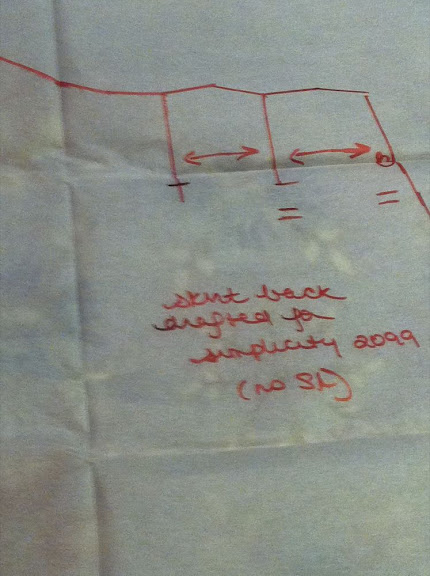 skirt back
drafted for
simplicity 2099
(no SA)